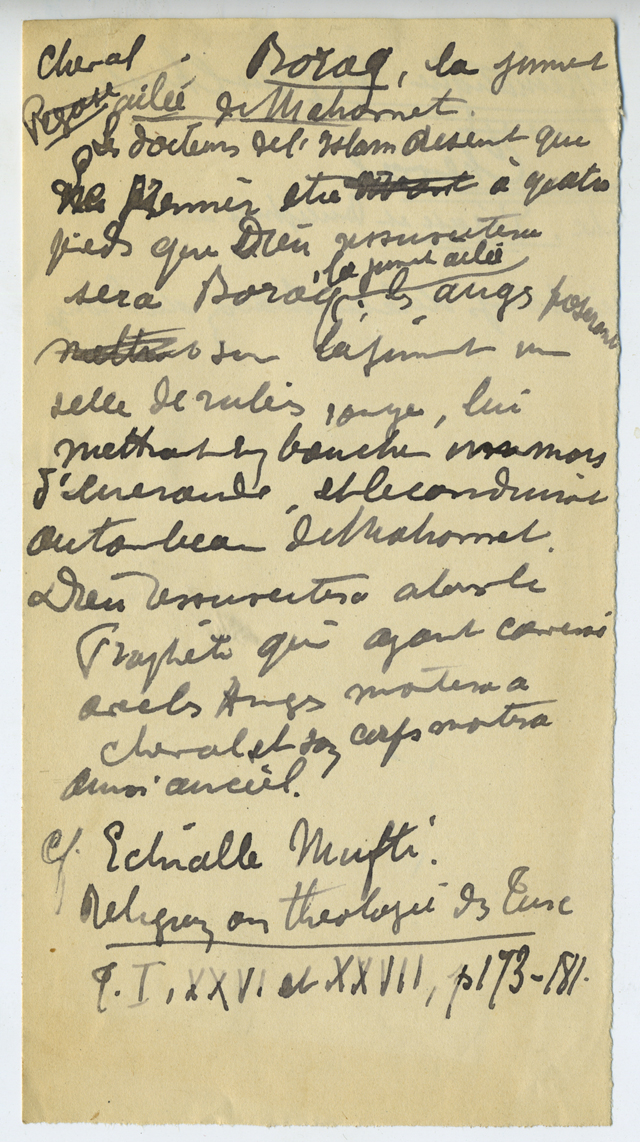 Cheval Boraq, la jument
Pegase ailée de Mahomet.
Les docteurs de l'Islam disent que
le premier être à quatre
pieds que Dieu ressuscitera
la jument ailée
sera Boraq, les anges poseront
sur la jument une
selle de rubis rouge, lui
mettront en bouche un mors
d'émeraude, et le conduiront
au tombeau de Mahomet.
Dieu ressuscitera alors le
Prophète qui ayant
avec les Anges montera a
cheval et son corps montera
ainsi au ciel.
cf. Echialle Mufti.
Religion ou theologie des Turc
T. I, XXVI et XXVII, p 173-181.